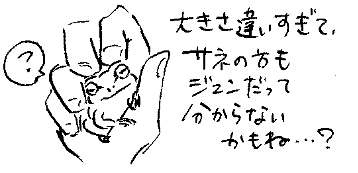 ?
大きさ違いすぎて、
サネの方も
ジュンだって
分からない
かもね…?